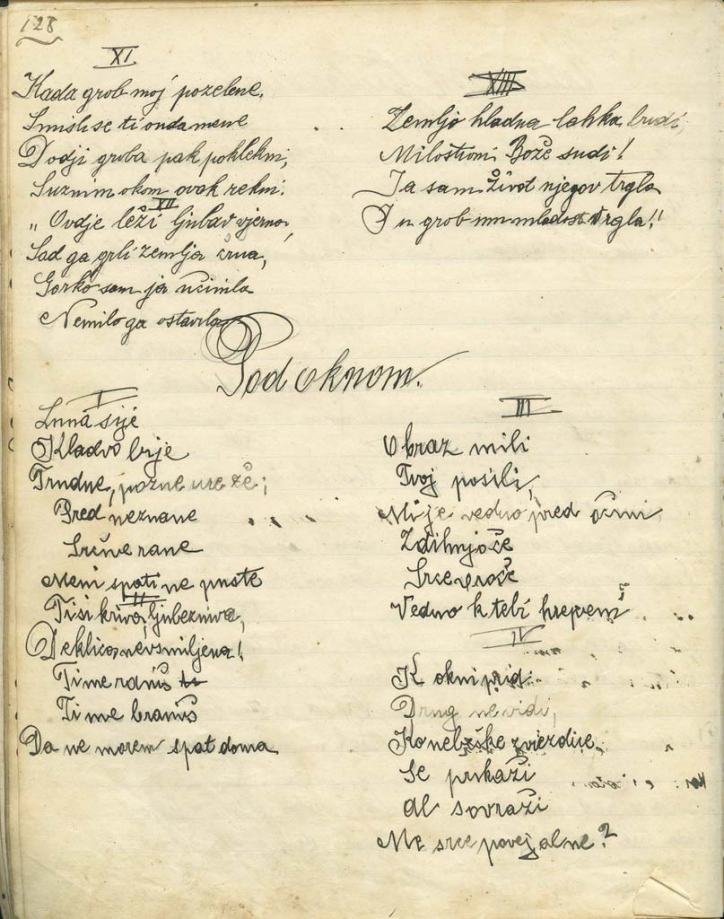 128
XI.
Kada grob moj pozelene,
Smisli se ti onda mene
Dodji groba pak poklekni,
Suznim okom ovak rekni.
XII
„Ovdje leži ljubav vjerna,
Sad ga grli zemlja črna,
Gorko sam ja učinila
Nemilo ga ostavila
XIII
Zemljo hladna lahka budi,
Milostivni Bože sudi!
Ja sam život njegov trgla
I u grob mu mladost vrgla!"
Pod oknom.
I
Luna sije
Kladvo bije
Trudne, pozne ure že;
Pred neznane
Srčne rane
Meni spati ne puste
II
Ti si kriva, ljubezniva,
Deklica nevsmiljena!
Ti me raniš
Ti me braniš
Da ne morem spat doma
III
Obraz mili
Tvoj posili,
Mi je vedno pred očmi
Zdihujoče
Srce vroče
Vedno k tebi hrepeni
IV
K okni pridi
Drug ne vidi,
Ko nebeške zviezdice
Se prikaži
Al sovraži
Me srce povej al ne?